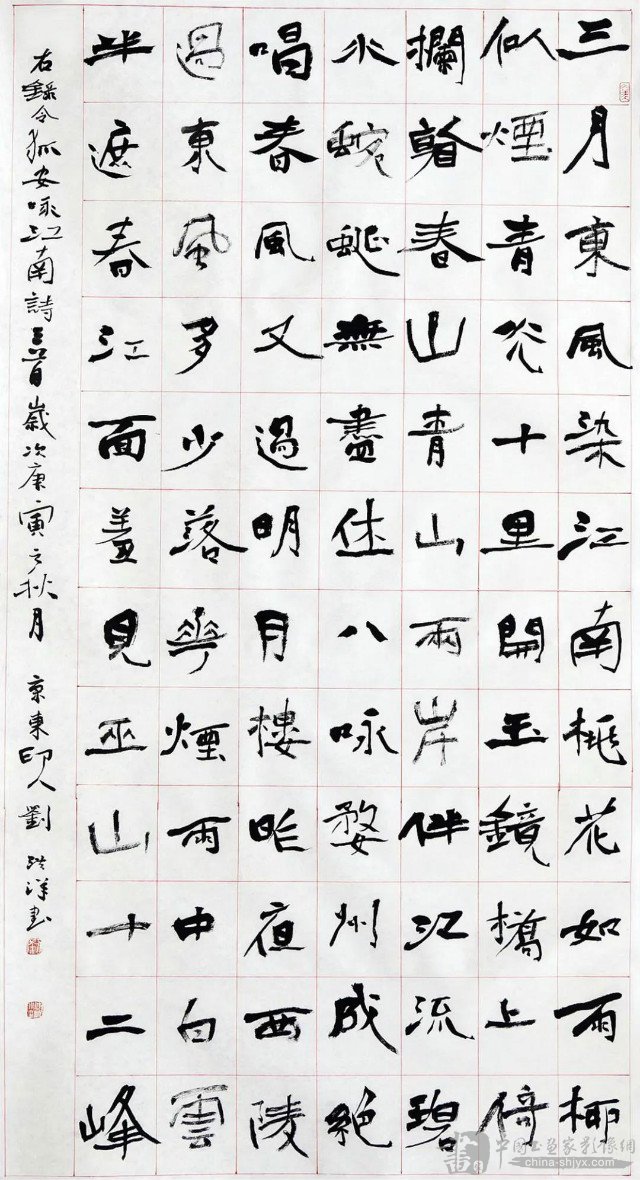 三月東風染江南桃花如雨柳
似煙青光十里開玉鏡橋上倚
攔觀春山青山兩岸伴江流碧
水蜿蜒無盡休八咏婺州成絕
唱春風又過明月樓昨夜西陵
過東風多少落華煙雨中白雲
半遮春江面羞見巫山十二峰
右錄令狐安咏江南詩三首歲次庚寅之秋月 京東印人劉洪洋書
中国书画家影像網
china-shjyx.com